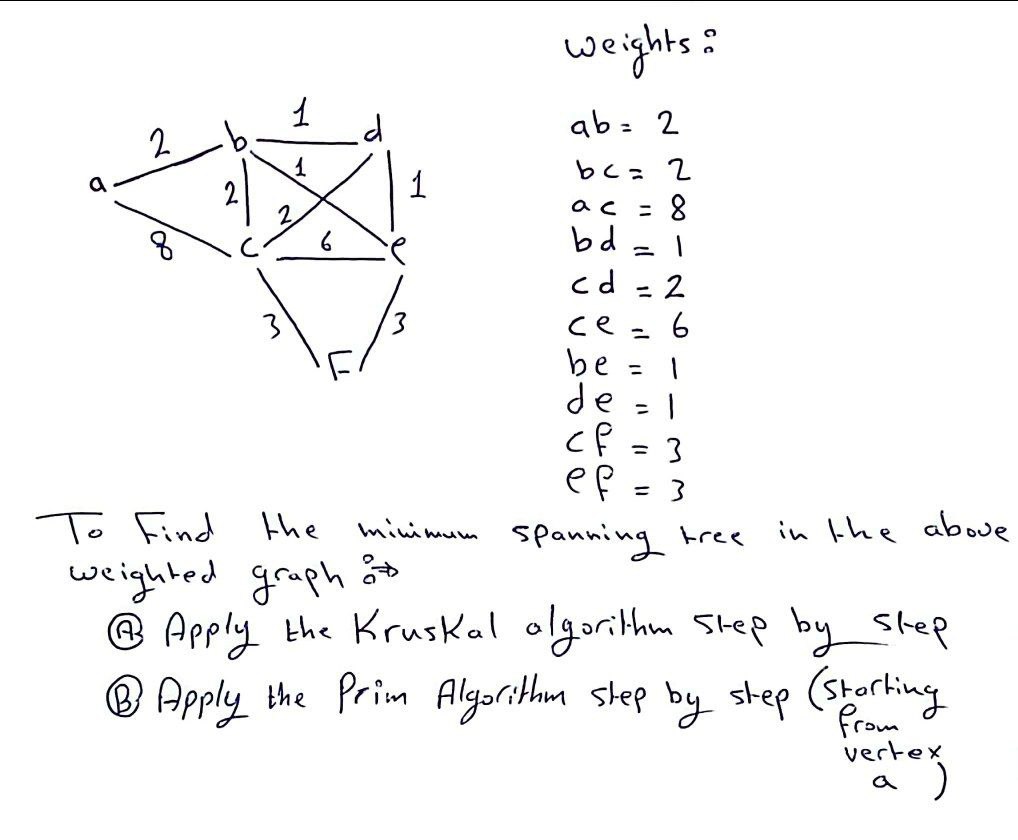 weights:
ab = 2
bc = 2
ac = 8
bd = 1
cd = 2
ce = 6
be = 1
de = 1
cf = 3
ef = 3
a
b
d
c
e
F
2
1
2
1
2
1
8
6
3
3
To Find the minimum spanning tree in the above
weighted graph :⇒
Ⓐ Apply the Kruskal algorithm step by step
Ⓑ Apply the Prim Algorithm step by step (starting
from
vertex
a )